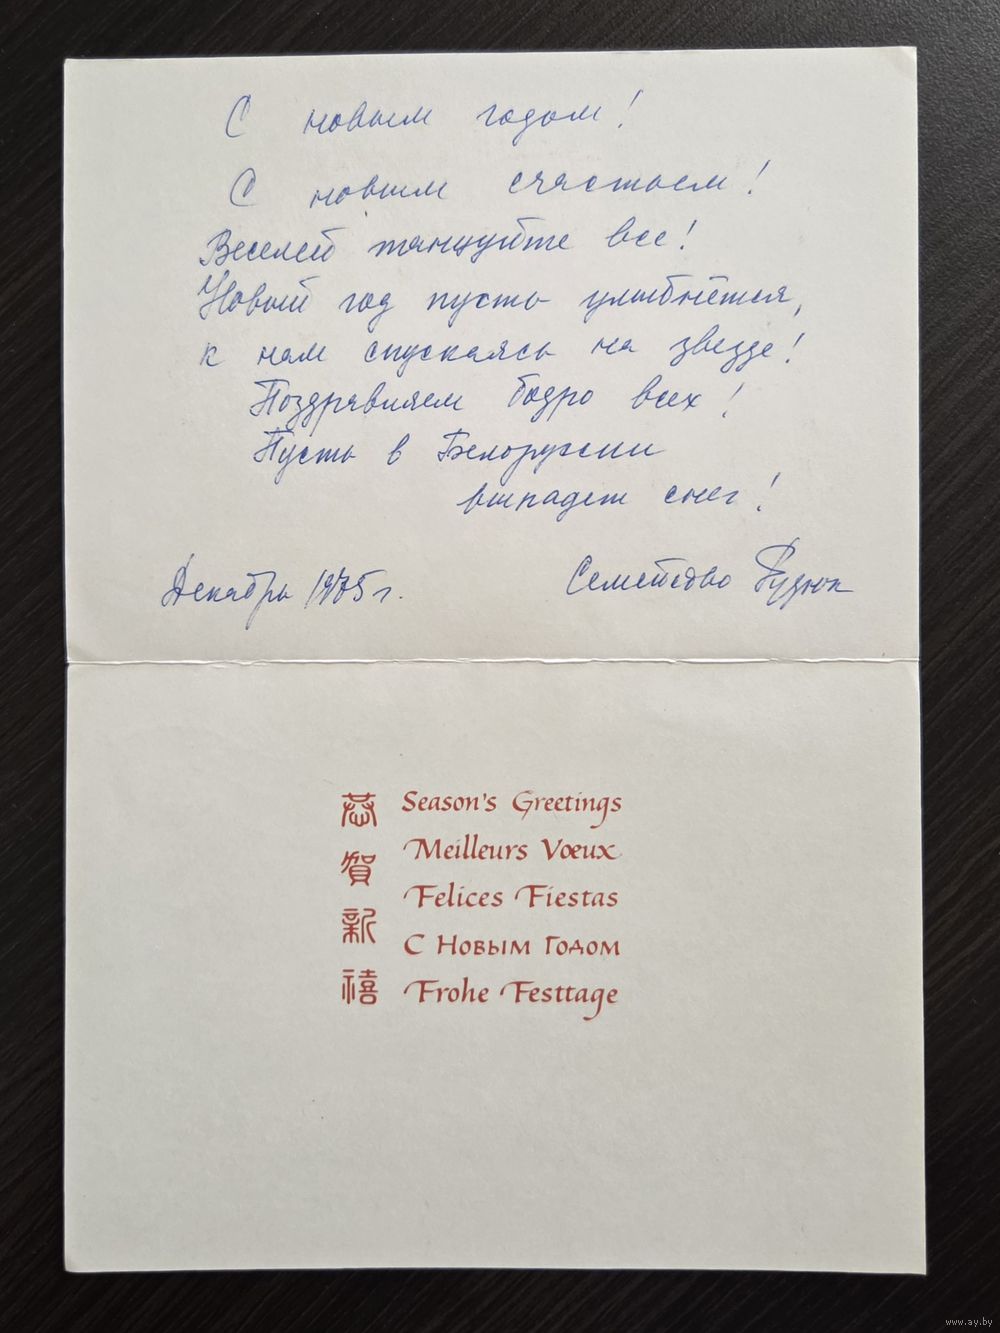 С новым годом!
С новым счастьем!
Веселей танцуйте все!
Новый год пусть улыбнётся,
к нам спускаясь на звезде!
Поздравляем бодро всех!
Пусть в Белоруссии
выпадет снег!
Декабрь 1975 г.
Семейство
恭賀新禧
Season's Greetings
Meilleurs Vœux
Felices Fiestas
С Новым Годом
Frohe Festtage
www.ay.by